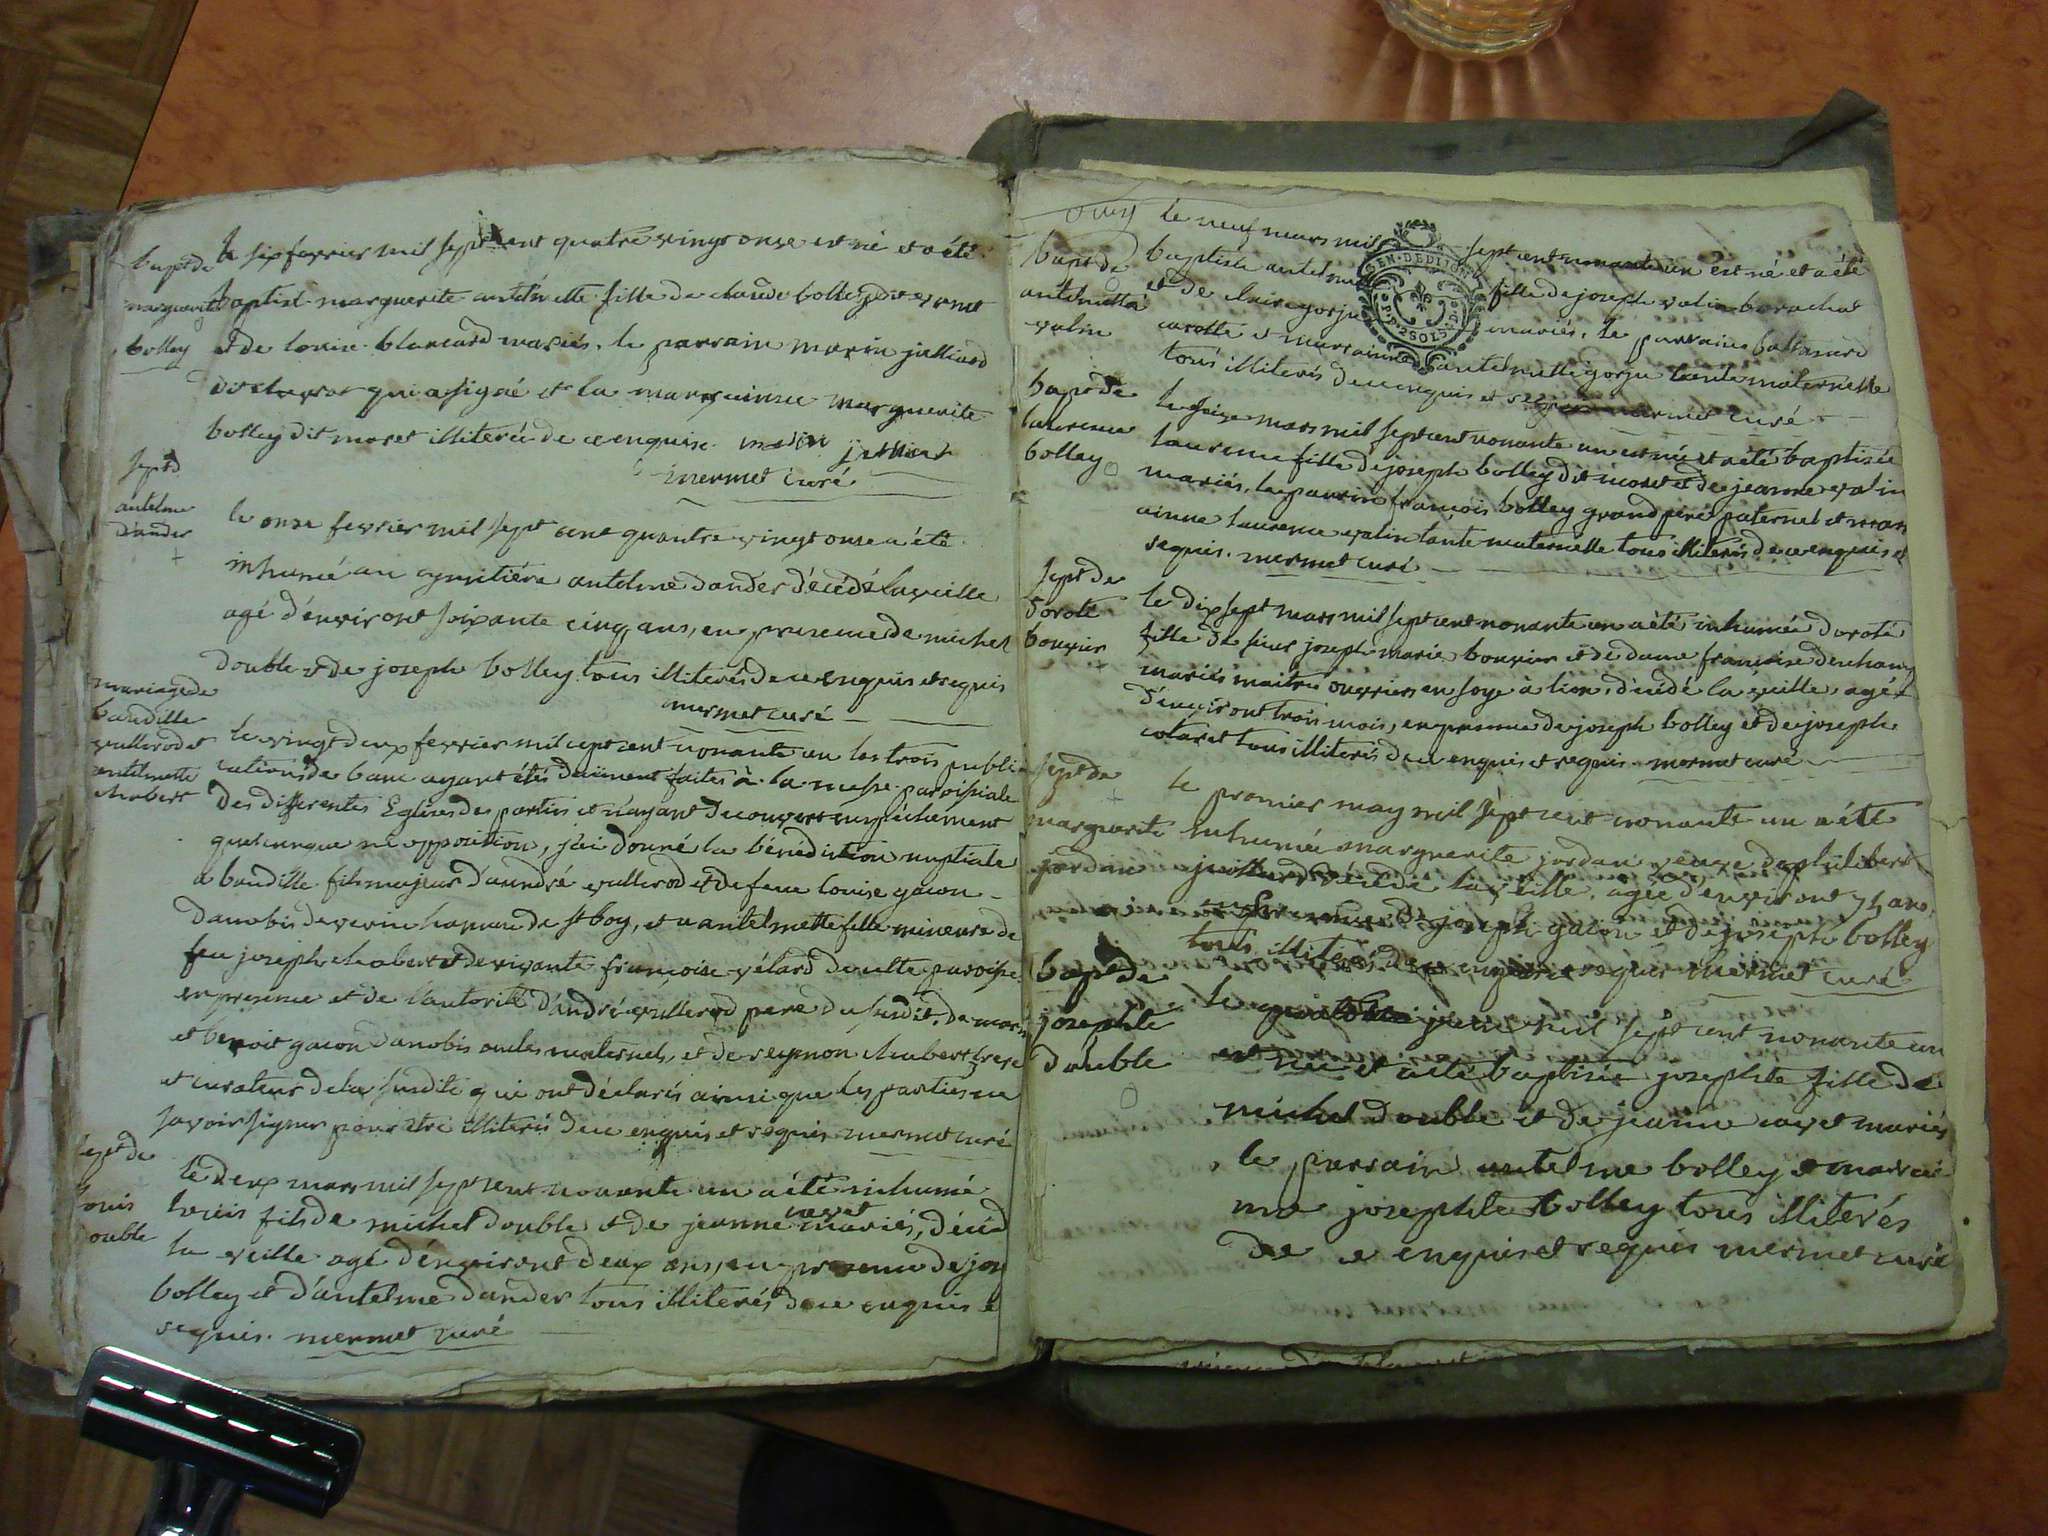 bapt de
marguerite
bolley
le six fevrier mil sept cent quatre vingt onze est né et a été
baptisé marguerite antelmette fille de claude bolley dit
et de louise blancard mariés, le parrain marin juilliard
qui a signé et la marrainne marguerite
bolley dit moret illiterée de ce enquise. marin juilliard
mermet curé
sept d
antelme
dander
le onze fevrier mil sept cent quantre vingt onze a été
inhumé au cymitiére antelme dander décédé la veille
agé d'environt soixante cinq ans, en presence de michel
double et de joseph bolley tous illiterés de ce enquis et requis
mermet curé
mariage de
baudille
vullerod et
antelmette
chabert
le vingt deux fevrier mil cept cent nonante un les trois publi
cations de banc ayant étés duëment faites à la messe paroissiale
des differentes Eglises de parties et n'ayant decouvert empêchement
quelconque ne opposition, j'ai donné la bénédiction nuptiale
a baudille fils majeur d'andré vullerod et de feue louise gacon
danobis de verin hameau de st boy, et a antelmette fille mineure de
feu joseph chabert et de vivante françoise vélard de cette paroisse
en presence et de l'autorité d'andré vullerod pere du susdit, de
et benoit gacon danobis oncles maternels, et de reymon chabert frere
et curateur de la susdite qui ont déclarés ainsi que les parties ne
savoir signer pour etre illiterés de ce enquis et requis mermet curé
sept de
louis
double
le deux mars mil sept cent nonante un a été inhumé
louis fils de michel double et de jeanne cavet mariés, décéd
la veille agé d'environt deux ans, en presence de jos
bolley et d'antelme dander tous illiterés de ce enquis e
requis. mermet curé
bapt de
antelmette
valin
le neuf mars mil sept cent nonante un est né et a été
baptisée antelmette fille de joseph valin
et de claire gorju mariés, le parrain
et marrainne antelmette gorju tante maternelle
tous illiterés de ce enquis et requis mermet curé
GEN. DE DIJON
2 SOLS
bapt de
laurence
bolley
le seize mars mil sept cent nonante un est né et a été baptisée
laurence fille de joseph bolley dit moret et de jeanne valin
mariés, le parrin françois bolley grand pere paternel et marr
ainne laurence valin tante maternelle tous illiterés de ce enquis et
requis. mermet curé
sept de
doroté
bouvier
le dix sept mars mil sept cent nonante un a été inhumée doroté
fille de sieur joseph marie bouvier et de dame francoise
mariés maitre ouvrier en soye à lion, décédé la veille agé
d'environt trois mois, en presence de joseph bolley et de joseph
tous illiterés de ce enquis et requis mermet curé
sept de
marguerite
jordan
le premier may mil sept cent nonante un a été
inhumé marguerite jordan veuve de philibert
juilliard décédé la veille, agée d'environt ans
en presence de joseph gacon et de joseph bolley
tous illiterés de ce enquis et requis mermet curé
bapt de
josephte
double
le quatorze juin mil sept cent nonante un
est née et a été baptisée josephte fille de
michel double et de jeanne cavet mariés
, le parrain antelme bolley et marrai
nne josephte bolley tous illiterés
de ce enquis et requis mermet curé